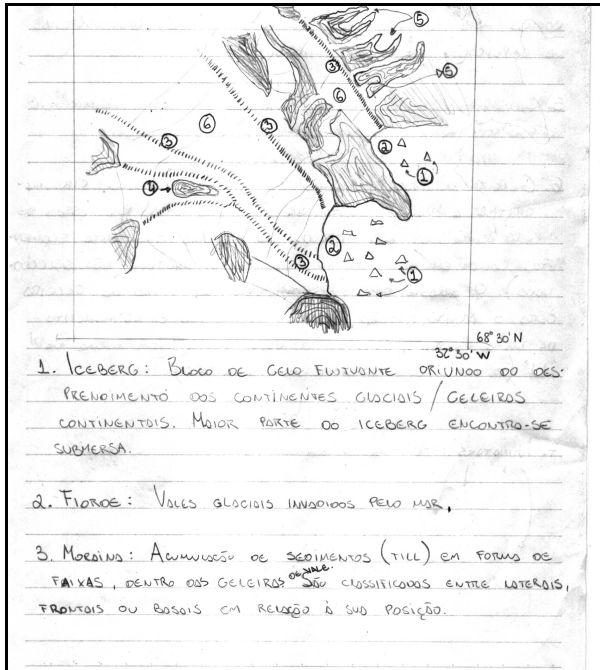 5
3
5
6
6
3
3
2
1
4
2
3
1
68° 30' N
32° 30' W
1. ICEBERG: BLOCO DE GELO FLUTUANTE ORIUNDO DO DES-
PRENDIMENTO DOS CONTINENTES GLACIAIS / GELEIRAS
CONTINENTAIS. MAIOR PARTE DO ICEBERG ENCONTRA-SE
SUBMERSA.
2. FIORDE: VALES GLACIAIS INVADIDOS PELO MAR.
3. MORAINA: ACUMULAÇÃO DE SEDIMENTOS (TILL) EM FORMA DE
FAIXAS, DENTRO DAS GELEIRAS DE VALE. SÃO CLASSIFICADOS ENTRE LATERAIS,
FRONTAIS OU BASAIS EM RELAÇÃO À SUA POSIÇÃO.